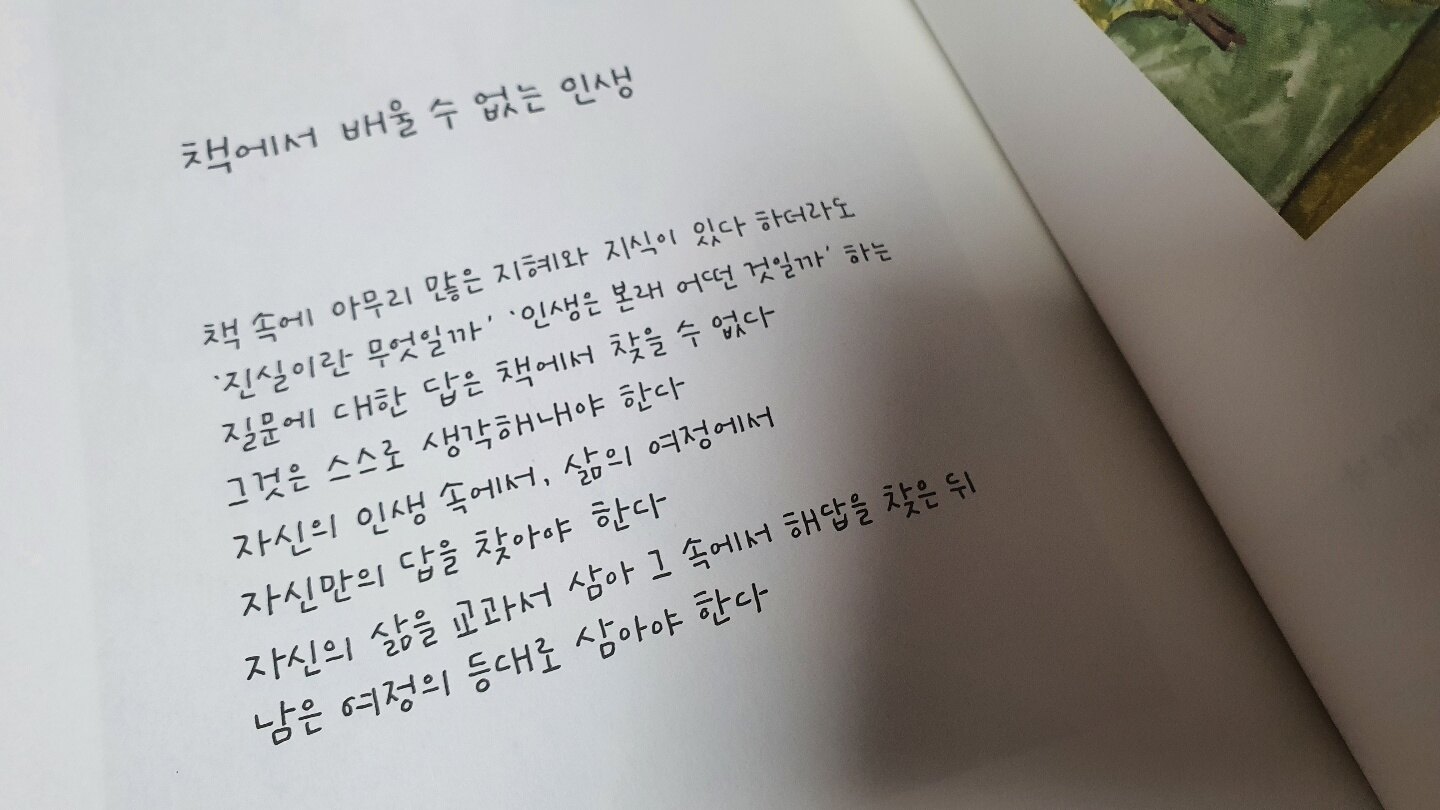 책에서 배울 수 없는 인생
책 속에 아무리 많은 지혜와 지식이 있다 하더라도
'진실이란 무엇일까' '인생은 본래 어떤 것일까' 하는
질문에 대한 답은 책에서 찾을 수 없다
그것은 스스로 생각해내야 한다
자신의 인생 속에서, 삶의 여정에서
자신만의 답을 찾아야 한다
자신의 삶을 교과서 삼아 그 속에서 해답을 찾은 뒤
남은 여정의 등대로 삼아야 한다